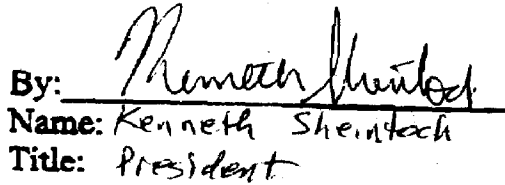 By: Kenneth Sheintoch
Name: Kenneth Sheintoch
Title: President